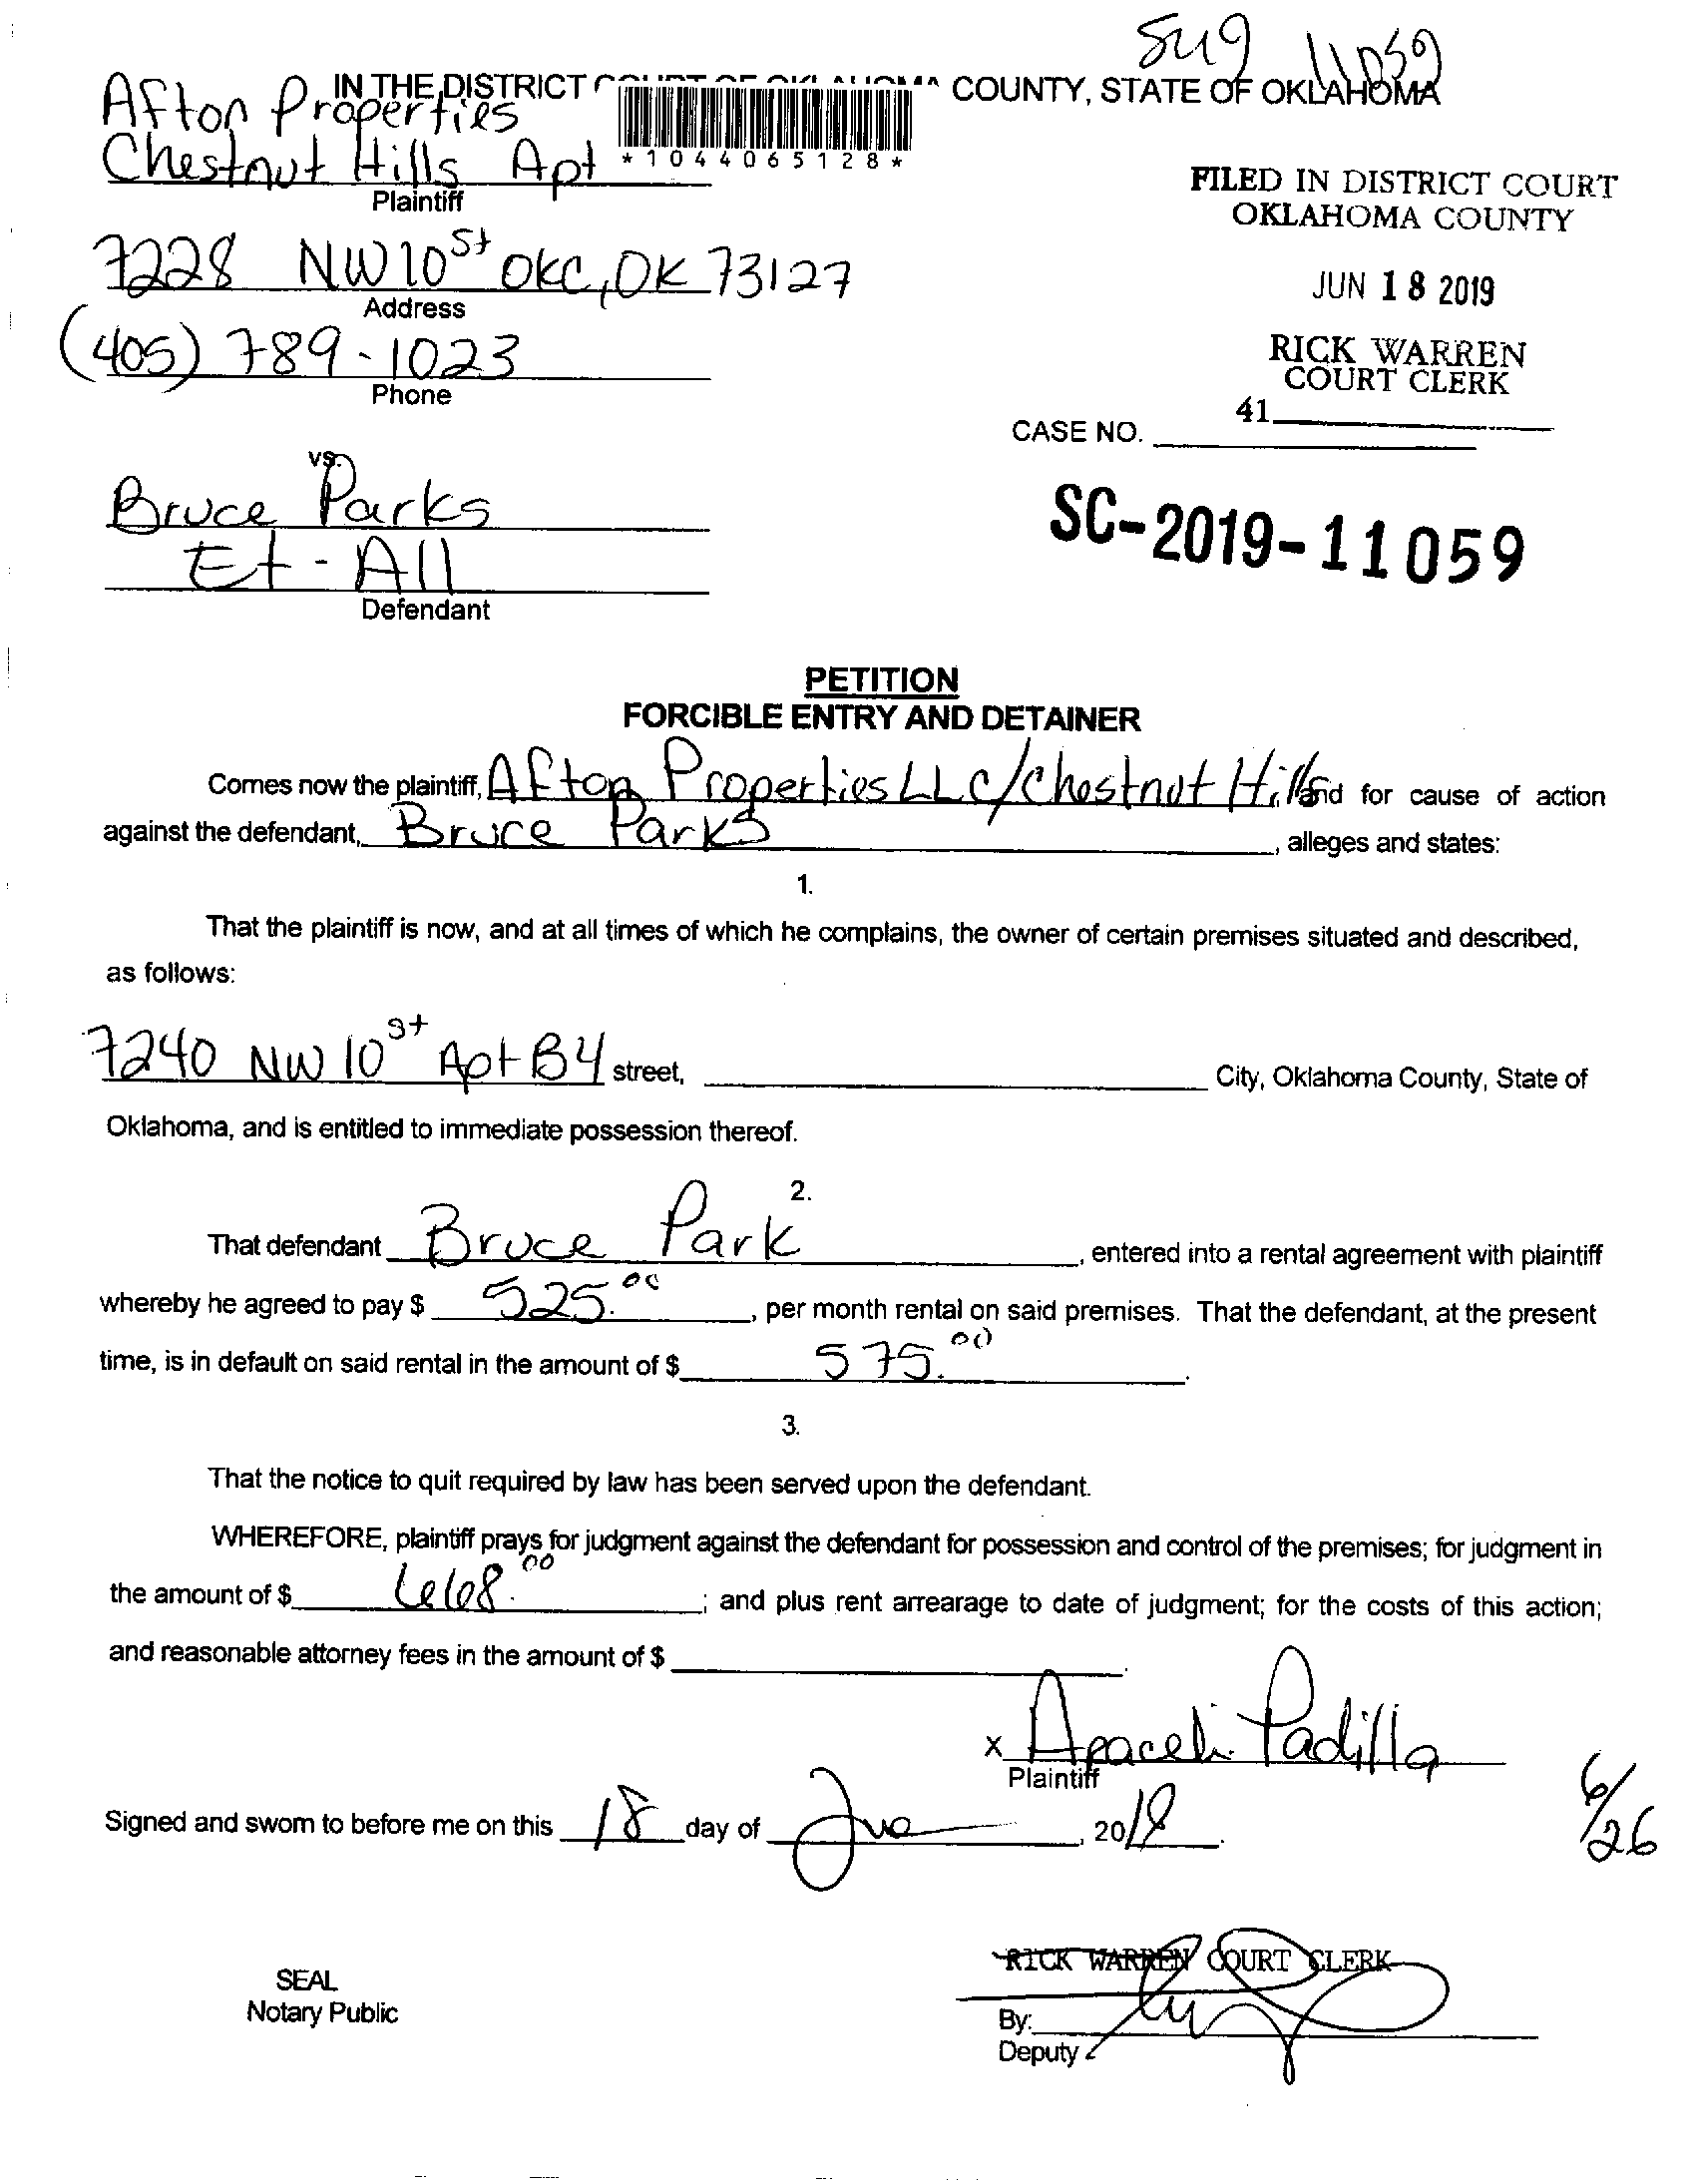 Su9 11059
IN THE DISTRICT COURT OF OKLAHOMA COUNTY, STATE OF OKLAHOMA
Afton Properties
Chestnut Hills Apt
*1044065128*
Plaintiff
FILED IN DISTRICT COURT
OKLAHOMA COUNTY
7228 NW 10 St OKC, OK 73127
Address
JUN 18 2019
(405) 789-1023
Phone
RICK WARREN
COURT CLERK
41
CASE NO.
vs.
Bruce Parks
Et-All
Defendant
SC-2019-11059
PETITION
FORCIBLE ENTRY AND DETAINER
Comes now the plaintiff, Afton Properties LLC/Chestnut Hills and for cause of action
against the defendant, Bruce Parks, alleges and states:
1.
That the plaintiff is now, and at all times of which he complains, the owner of certain premises situated and described,
as follows:
7240 NW 10 st Apt B4 street, City, Oklahoma County, State of
Oklahoma, and is entitled to immediate possession thereof.
2.
That defendant Bruce Park, entered into a rental agreement with plaintiff
whereby he agreed to pay $ 525.00, per month rental on said premises. That the defendant, at the present
time, is in default on said rental in the amount of $ 575.00.
3.
That the notice to quit required by law has been served upon the defendant.
WHEREFORE, plaintiff prays for judgment against the defendant for possession and control of the premises; for judgment in
the amount of $ 668.00; and plus rent arrearage to date of judgment; for the costs of this action;
and reasonable attorney fees in the amount of $
x Araceli Padilla
Plaintiff
Signed and sworn to before me on this 18 day of Jue, 2019.
6/26
RICK WARREN COURT CLERK
SEAL
Notary Public
By:
Deputy